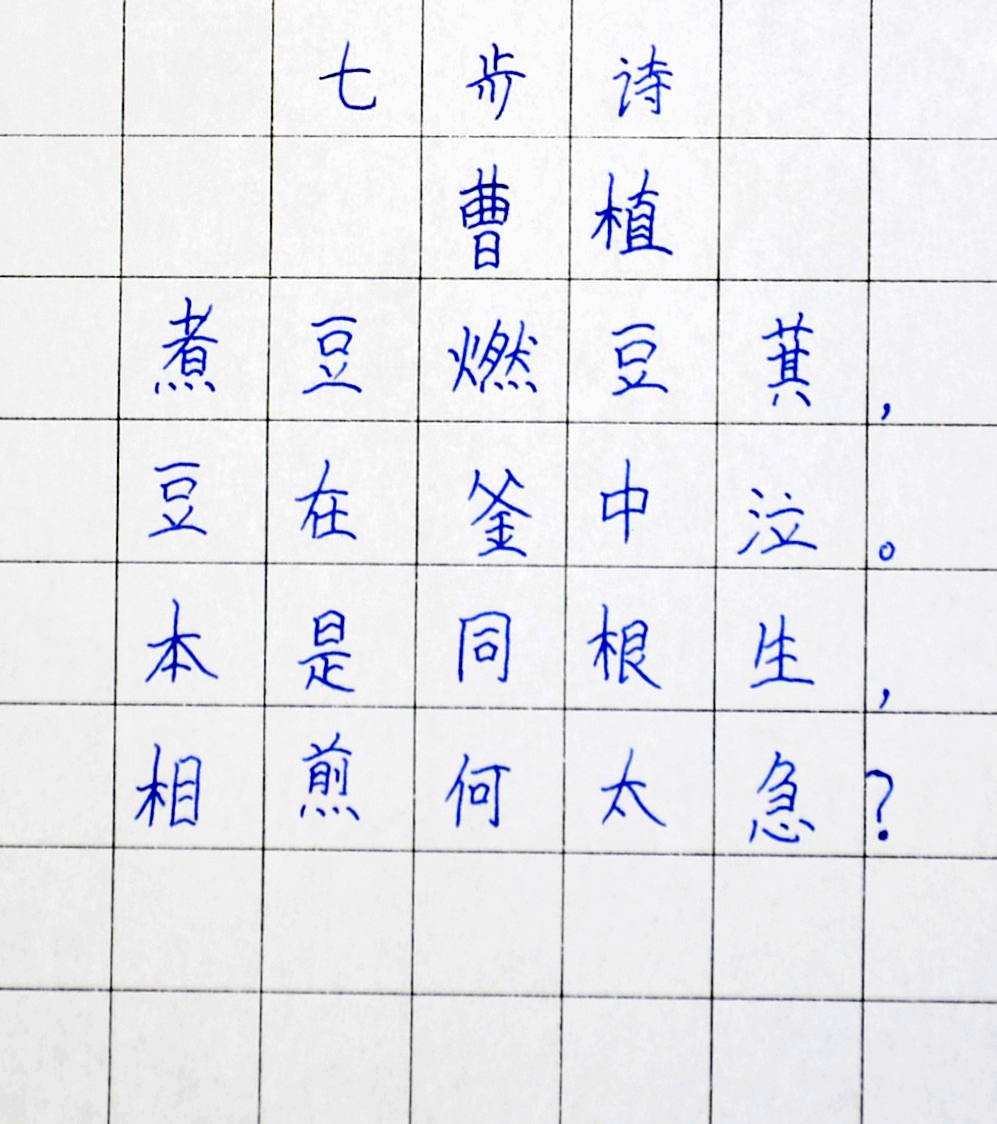 七步诗
曹植
煮豆燃豆萁，
豆在釜中泣。
本是同根生，
相煎何太急？